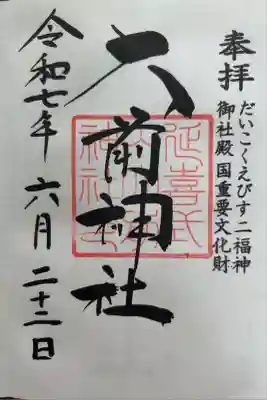 奉拝
だいこくえびす二福神
御社殿国重要文化財
大前神社
延喜式
令和七年六月二十二日